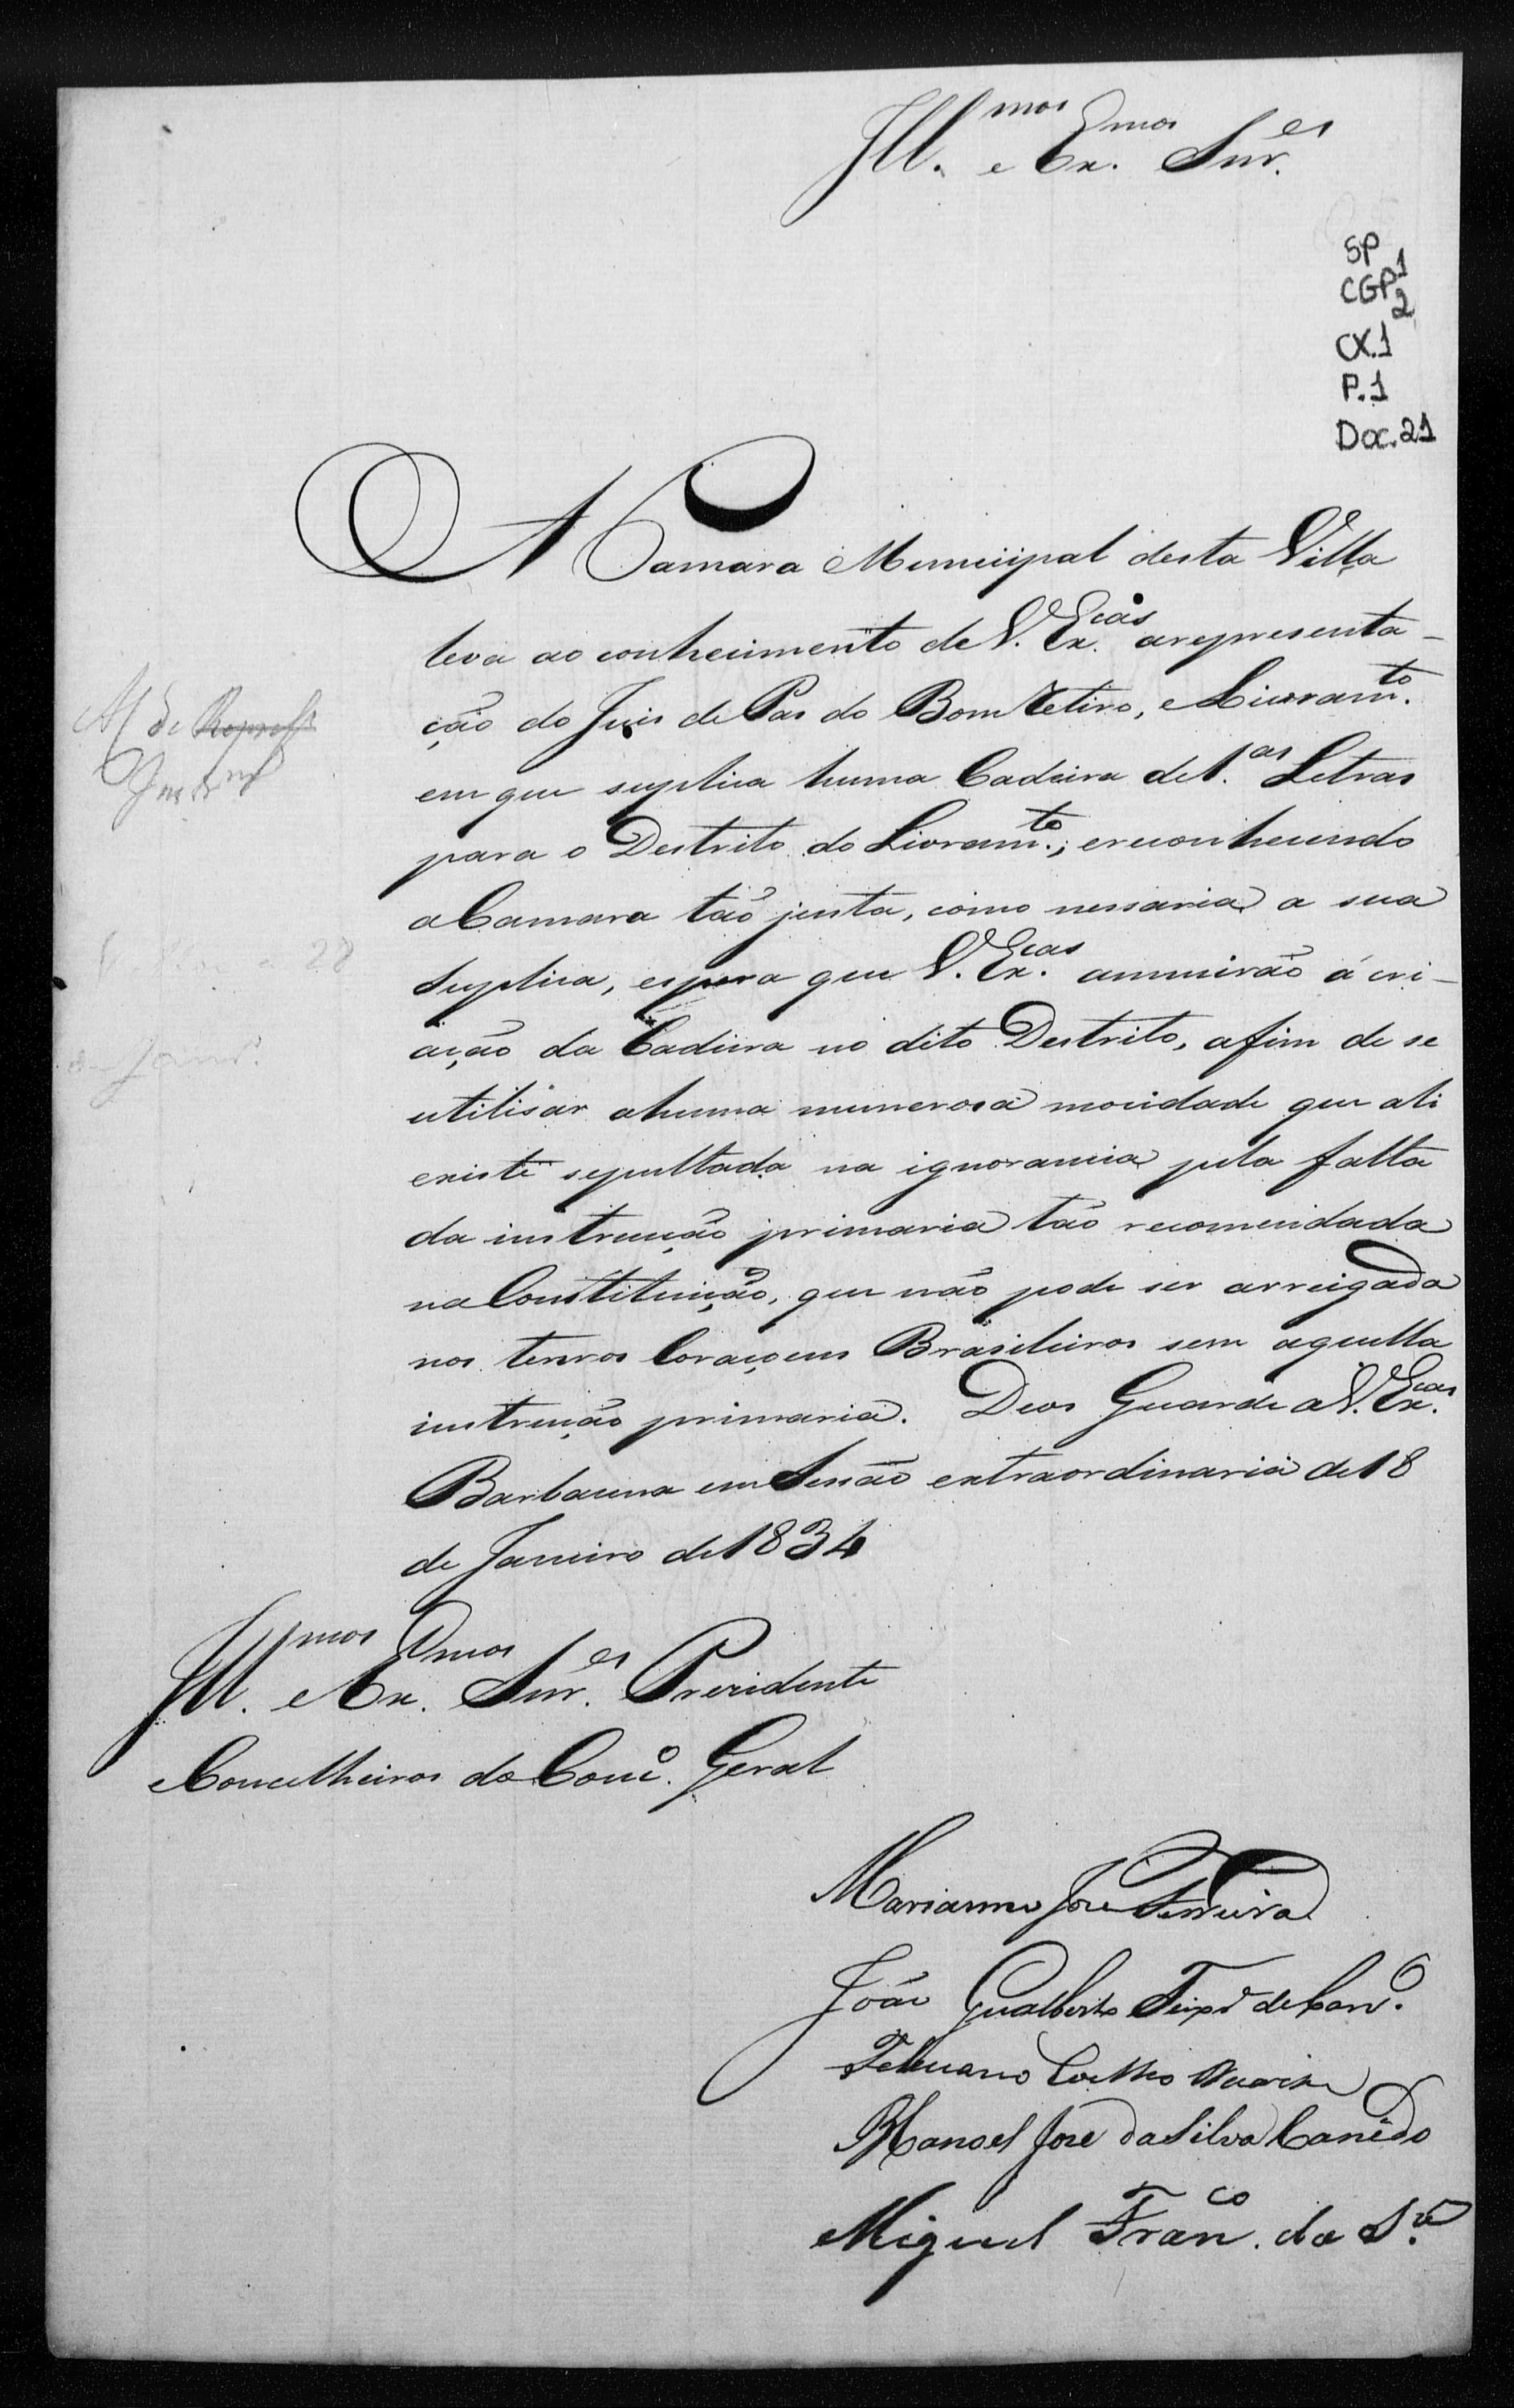 Ill.mos e Ex.mos Snr.es
SP
CGP1
2
CX.1
P.1
Doc.21
A Camara Municipal desta Villa
leva ao conhecimento de V. Ex.cas arepresenta-
ção do Juis de Pas do Bom Retiro, e Livram.to
em que suplica huma Cadeira de 1.as Letras
para o Destrito do Livram.to; ereconhecendo
a Camara tão justa, como nessaria a sua
Suplica, espera que V. Ex.cas annuirão á cri-
ação da Cadeira no dito Destrito, afim de se
utilisar ahuma numerosa mocidade que ali
existe sepultada na ignorancia pela falta
da instrucção primaria tão recomendada
na Constituição, que não pode ser arreigada
nos tenros Coraçoens Brasileiros sem aquella
instrução primaria. Deos Guarde a V. Ex.cas
Barbacena em Sessão extraordinaria de 18
de Janeiro de 1834
Ill.mos e Ex.mos Snr.es Prezidente
e Concelheiros do Conc.o Geral
Marianno Jose Ferreira
João Gualberto Teixr.a de Carv.o
Feliciano Coelho Duarte
Manoel Jose da Silva Canêdo
Miguel Fran.co da S.a
28
de Janr.o